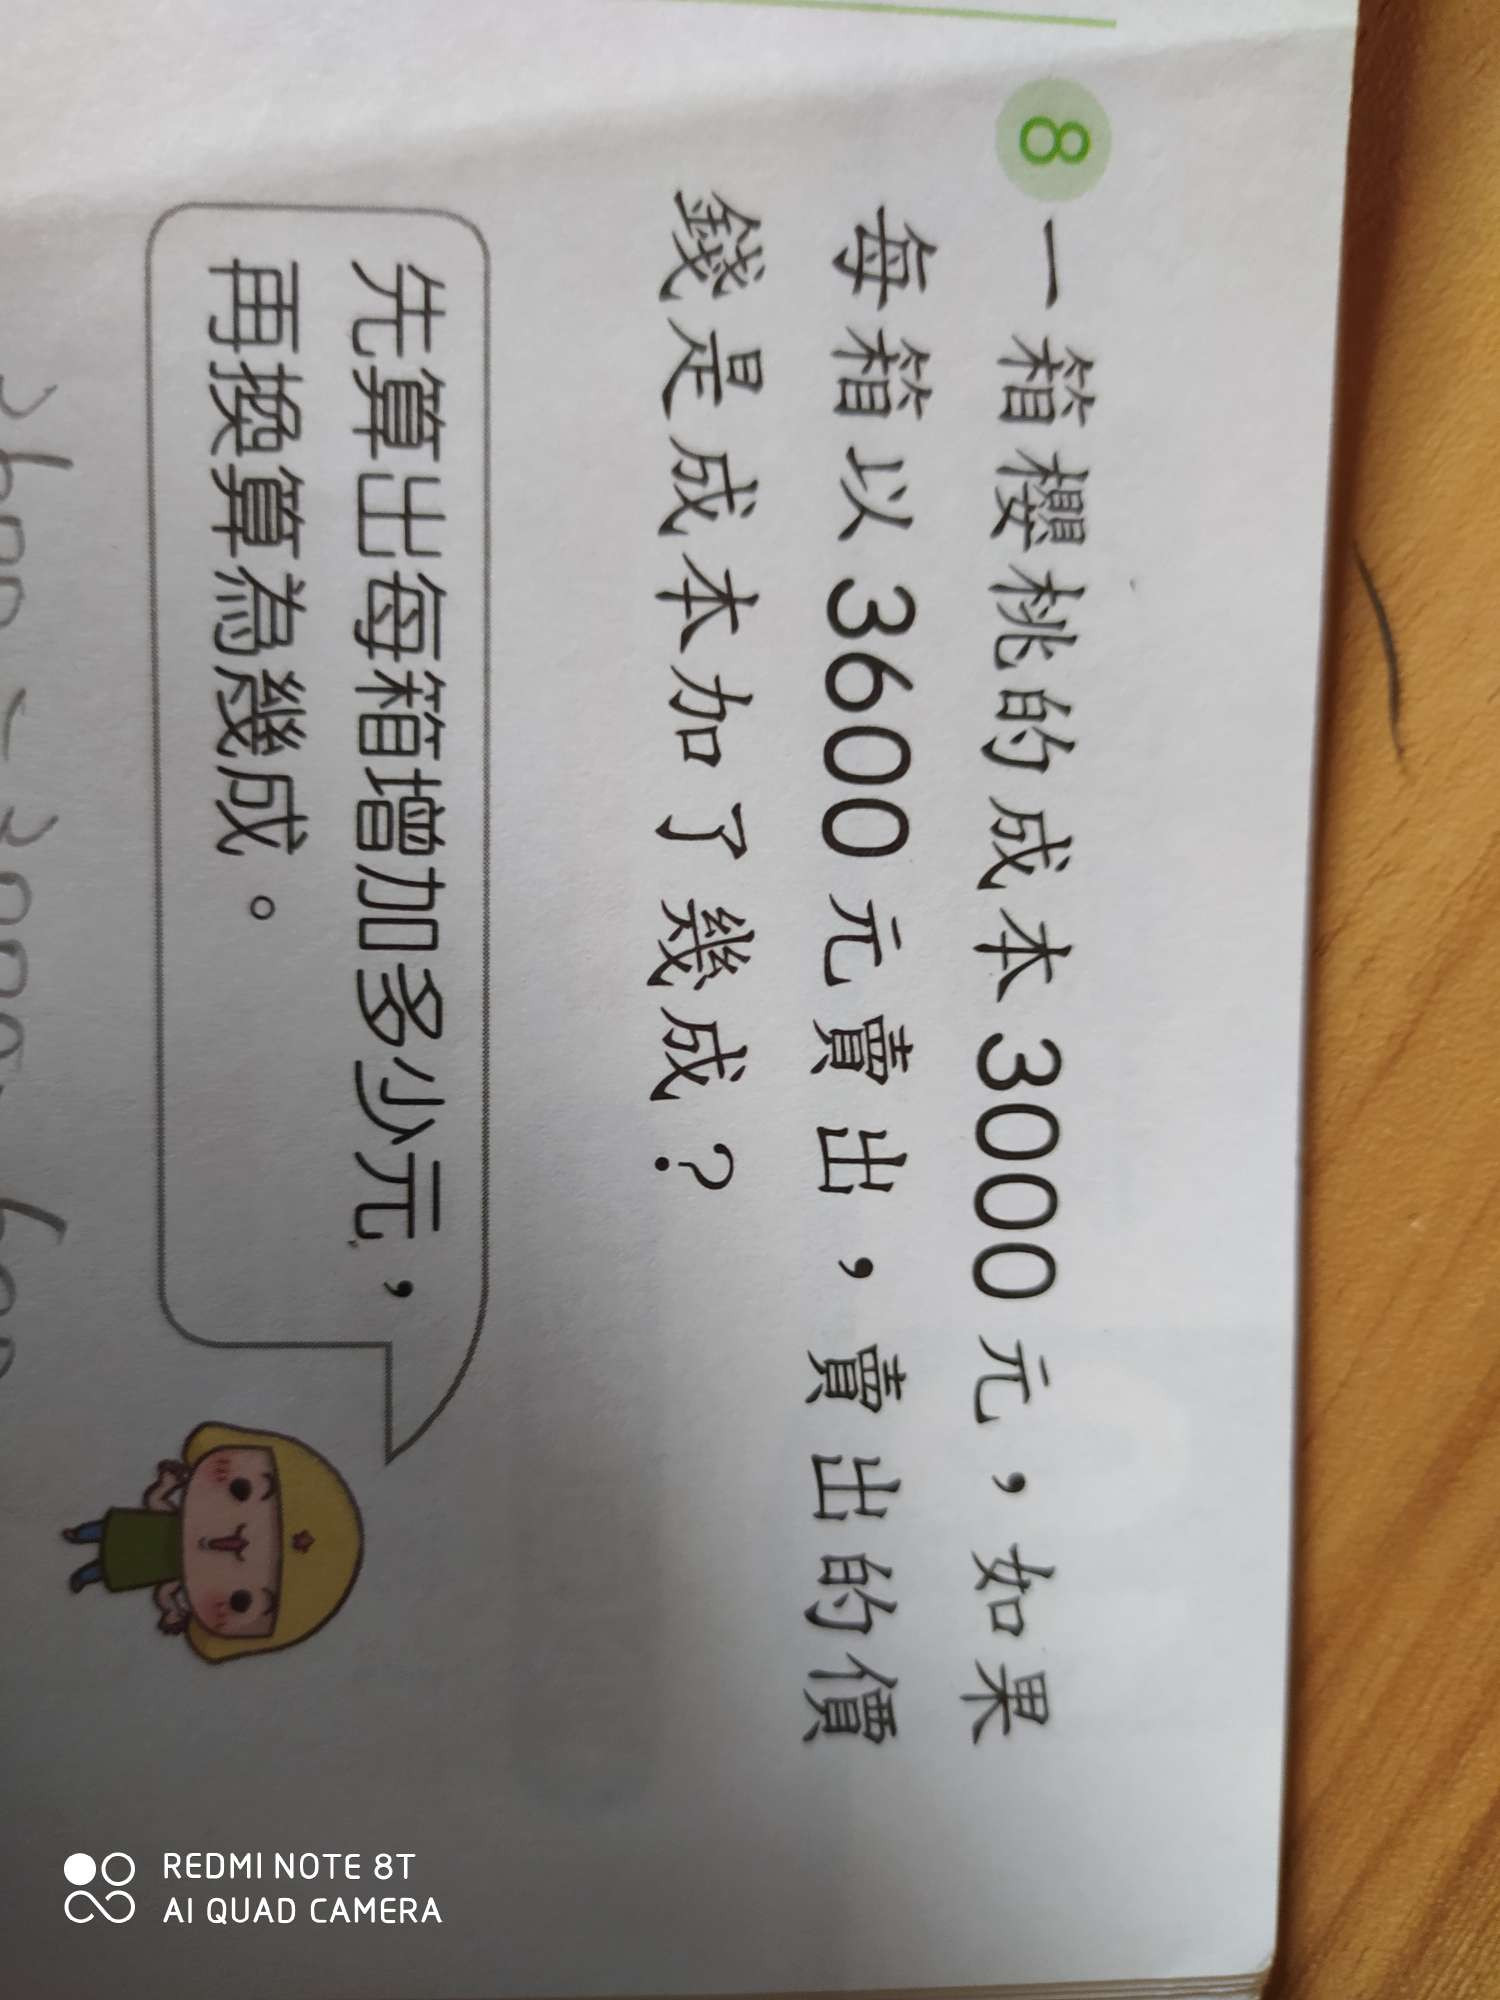 8 一箱櫻桃的成本3000元，如果
每箱以3600元賣出，賣出的價
錢是成本加了幾成？
先算出每箱增加多少元，
再換算為幾成。
REDMI NOTE 8T
AI QUAD CAMERA